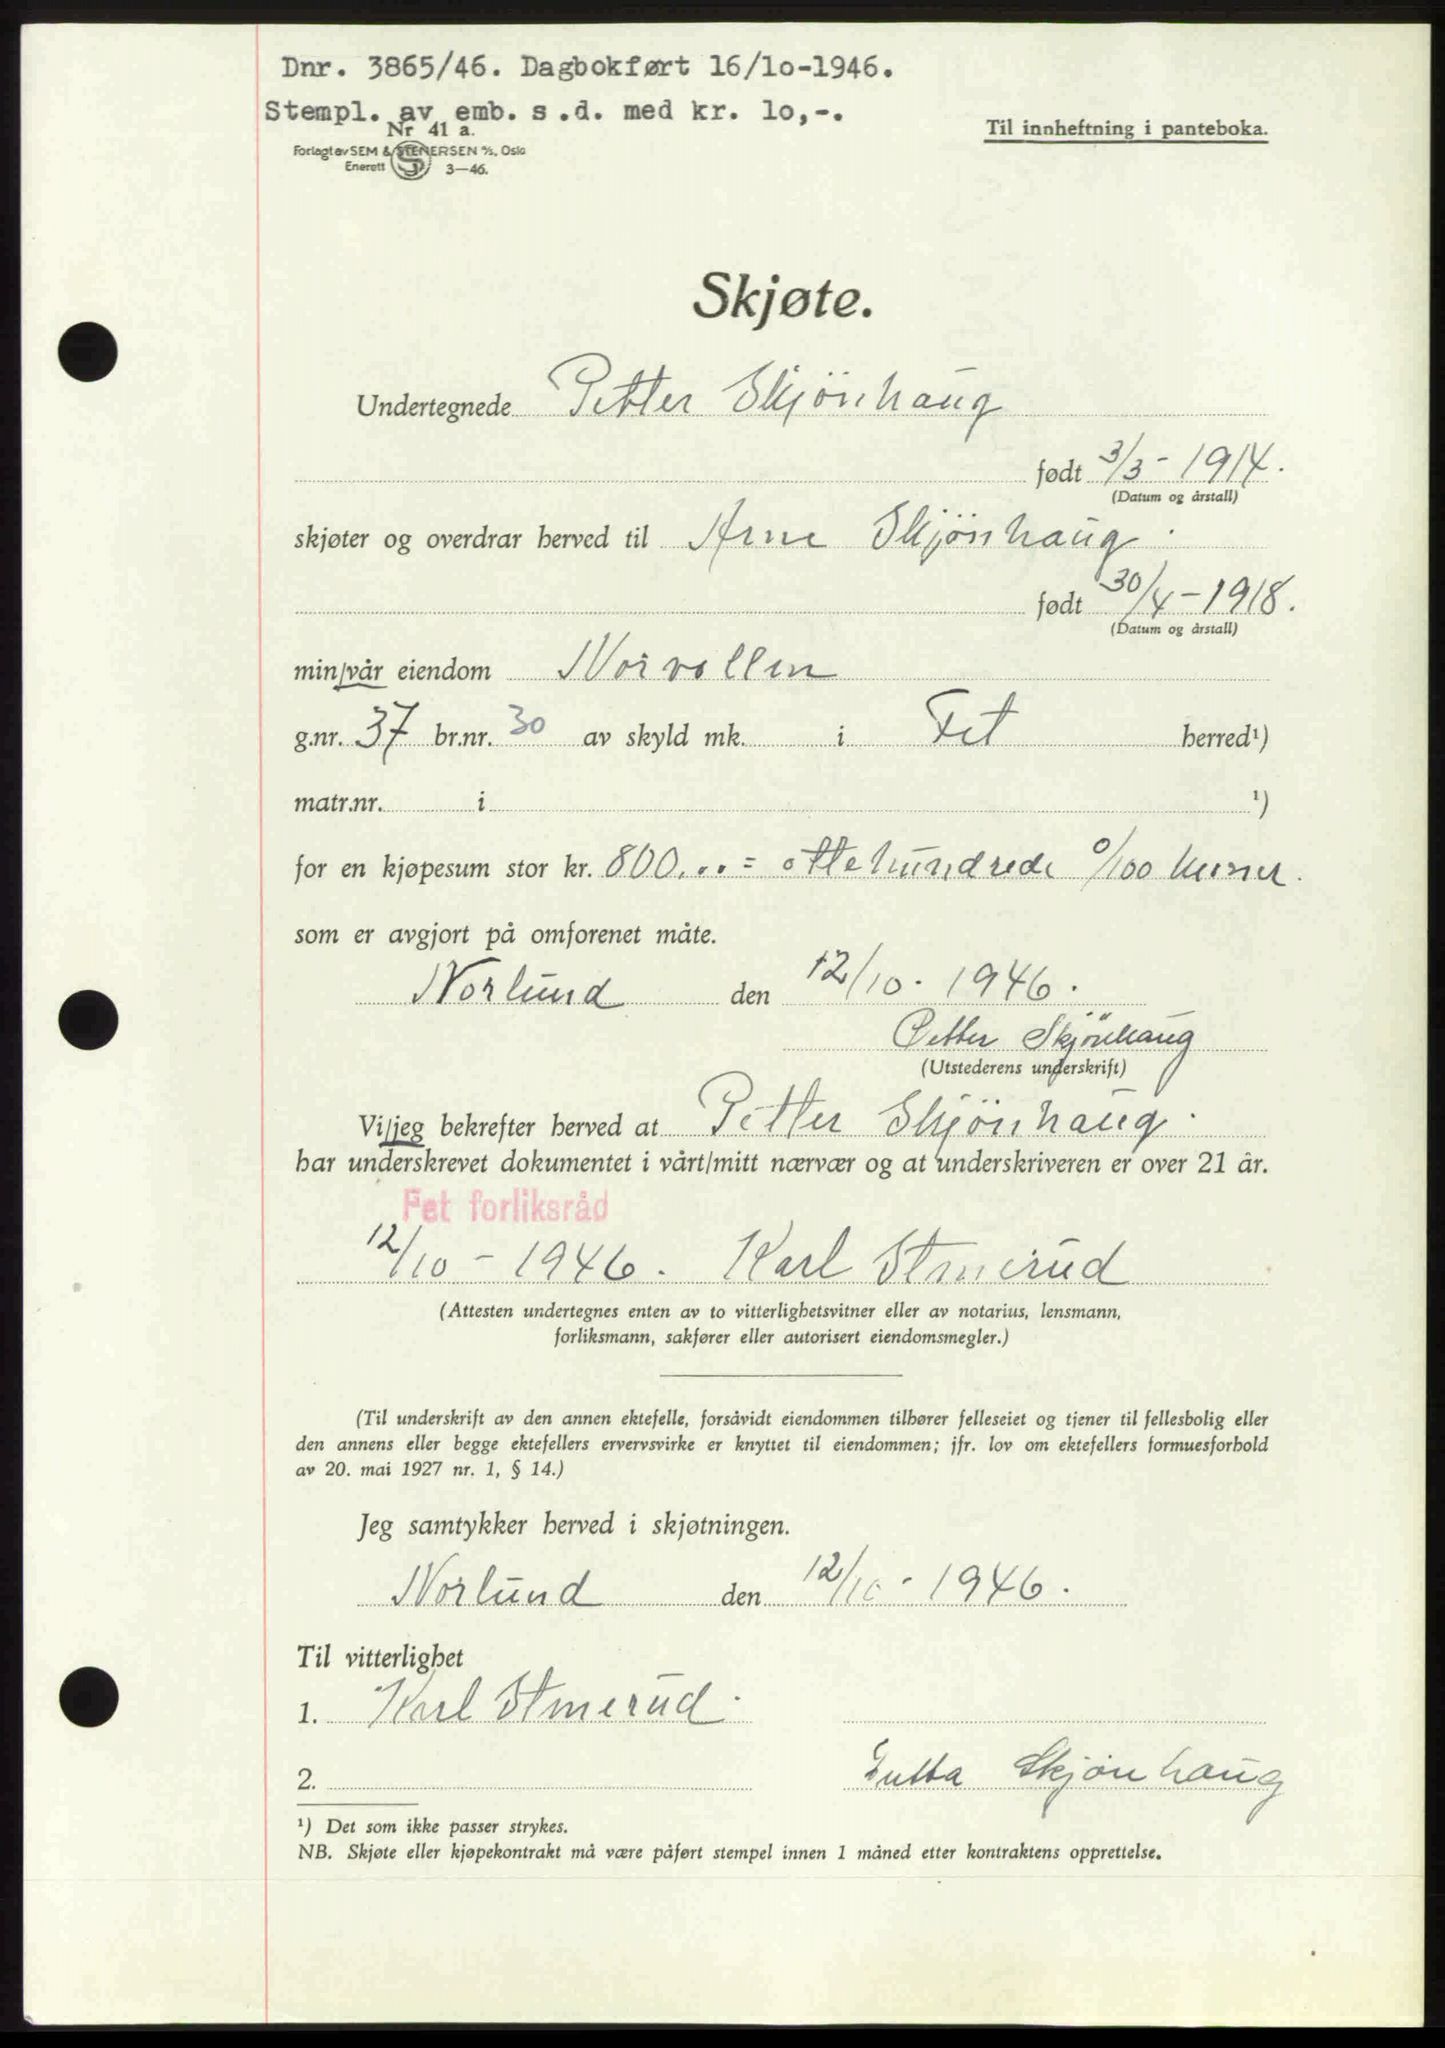 Dnr. 3865/46. Dagbokført 16/10-1946.
Stempl. av emb. s.d. med kr. 10,-.
Nr 41 a.
Forlagt av SEM & STENERSEN A/S, Oslo
Enerett 3—46.
Til innheftning i panteboka.
Skjøte.
Undertegnede Petter Skjönhaug
født 3/3 - 1914.
(Datum og årstall)
skjøter og overdrar herved til Arne Skjönhaug.
født 30/4 - 1918.
(Datum og årstall)
min/vår eiendom Norvollen
g.nr. 37 br.nr. 30 av skyld mk. i Fet herred¹)
matr.nr. i ¹)
for en kjøpesum stor kr. 800,.. = ottehundrede 0/100 kroner.
som er avgjort på omforenet måte.
Norlund den 12/10. 1946.
Petter Skjönhaug
(Utstederens underskrift)
Vi/jeg bekrefter herved at Petter Skjönhaug.
har underskrevet dokumentet i vårt/mitt nærvær og at underskriveren er over 21 år.
Fet forliksråd
12/10 - 1946. Karl
(Attesten undertegnes enten av to vitterlighetsvitner eller av notarius, lensmann,
forliksmann, sakfører eller autorisert eiendomsmegler.)
(Til underskrift av den annen ektefelle, forsåvidt eiendommen tilhører felleseiet og tjener til fellesbolig eller
den annens eller begge ektefellers ervervsvirke er knyttet til eiendommen; jfr. lov om ektefellers formuesforhold
av 20. mai 1927 nr. 1, § 14.)
Jeg samtykker herved i skjøtningen.
Norlund den 12/10 - 1946.
Til vitterlighet
1. Karl
2. Skjönhaug
¹) Det som ikke passer strykes.
NB. Skjøte eller kjøpekontrakt må være påført stempel innen 1 måned etter kontraktens opprettelse.